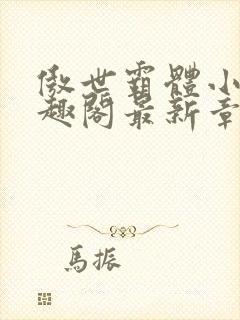 傲世霸體小
趣閣最新章
馬振